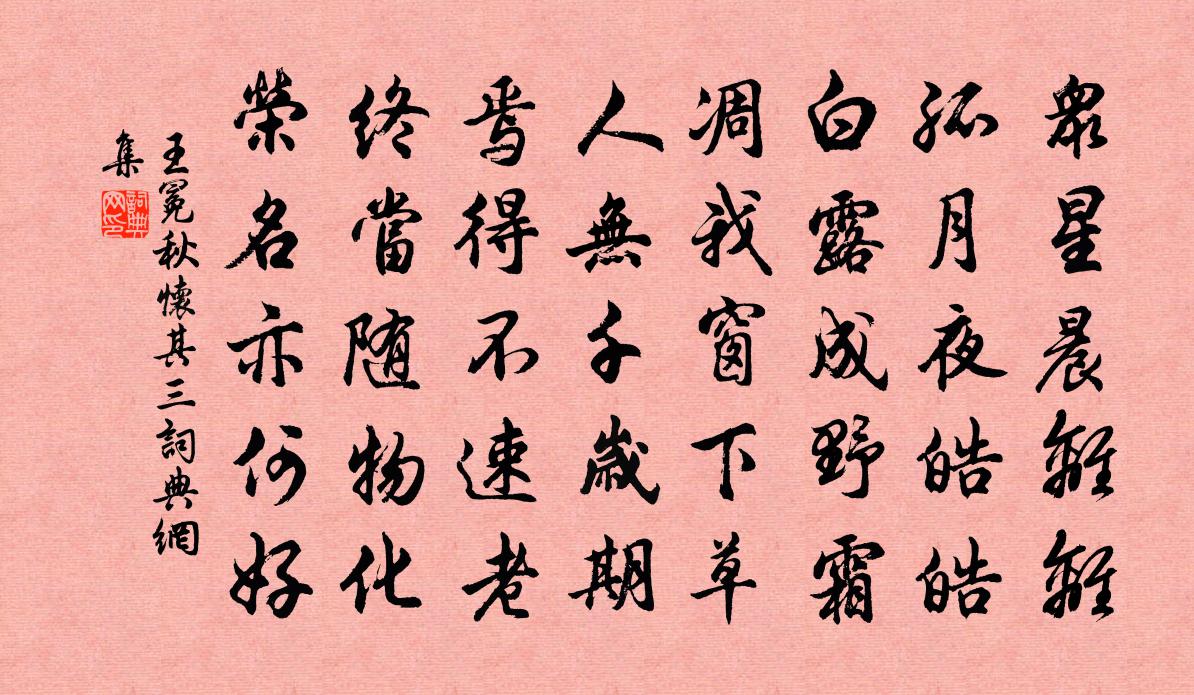 眾星晨離離
孤月夜皓皓
白露成野霜
凋我窗下草
人無千歲期
焉得不速老
終當随物化
榮名亦何好
王冕秋懷其三詞典網
集
詞典网印